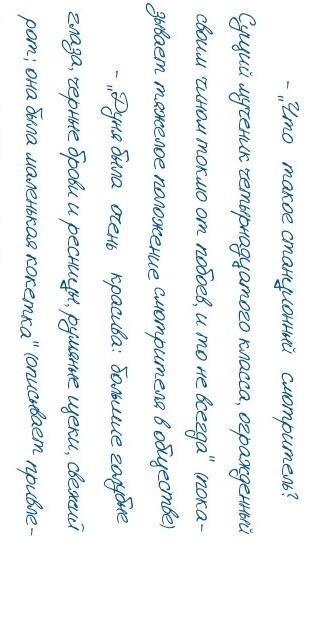 - „Что такое станционный смотритель?
Сущий мученик четырнадцатого класса, огражденный
своим чином токмо от побоев, и то не всегда" (пока-
зывает тяжелое положение смотрителя в обществе)
- „Дуня была очень красива: большие голубые
глаза, черные брови и ресницы, румяные щеки, свежий
рот; она была маленькая кокетка" (описывает, привле-